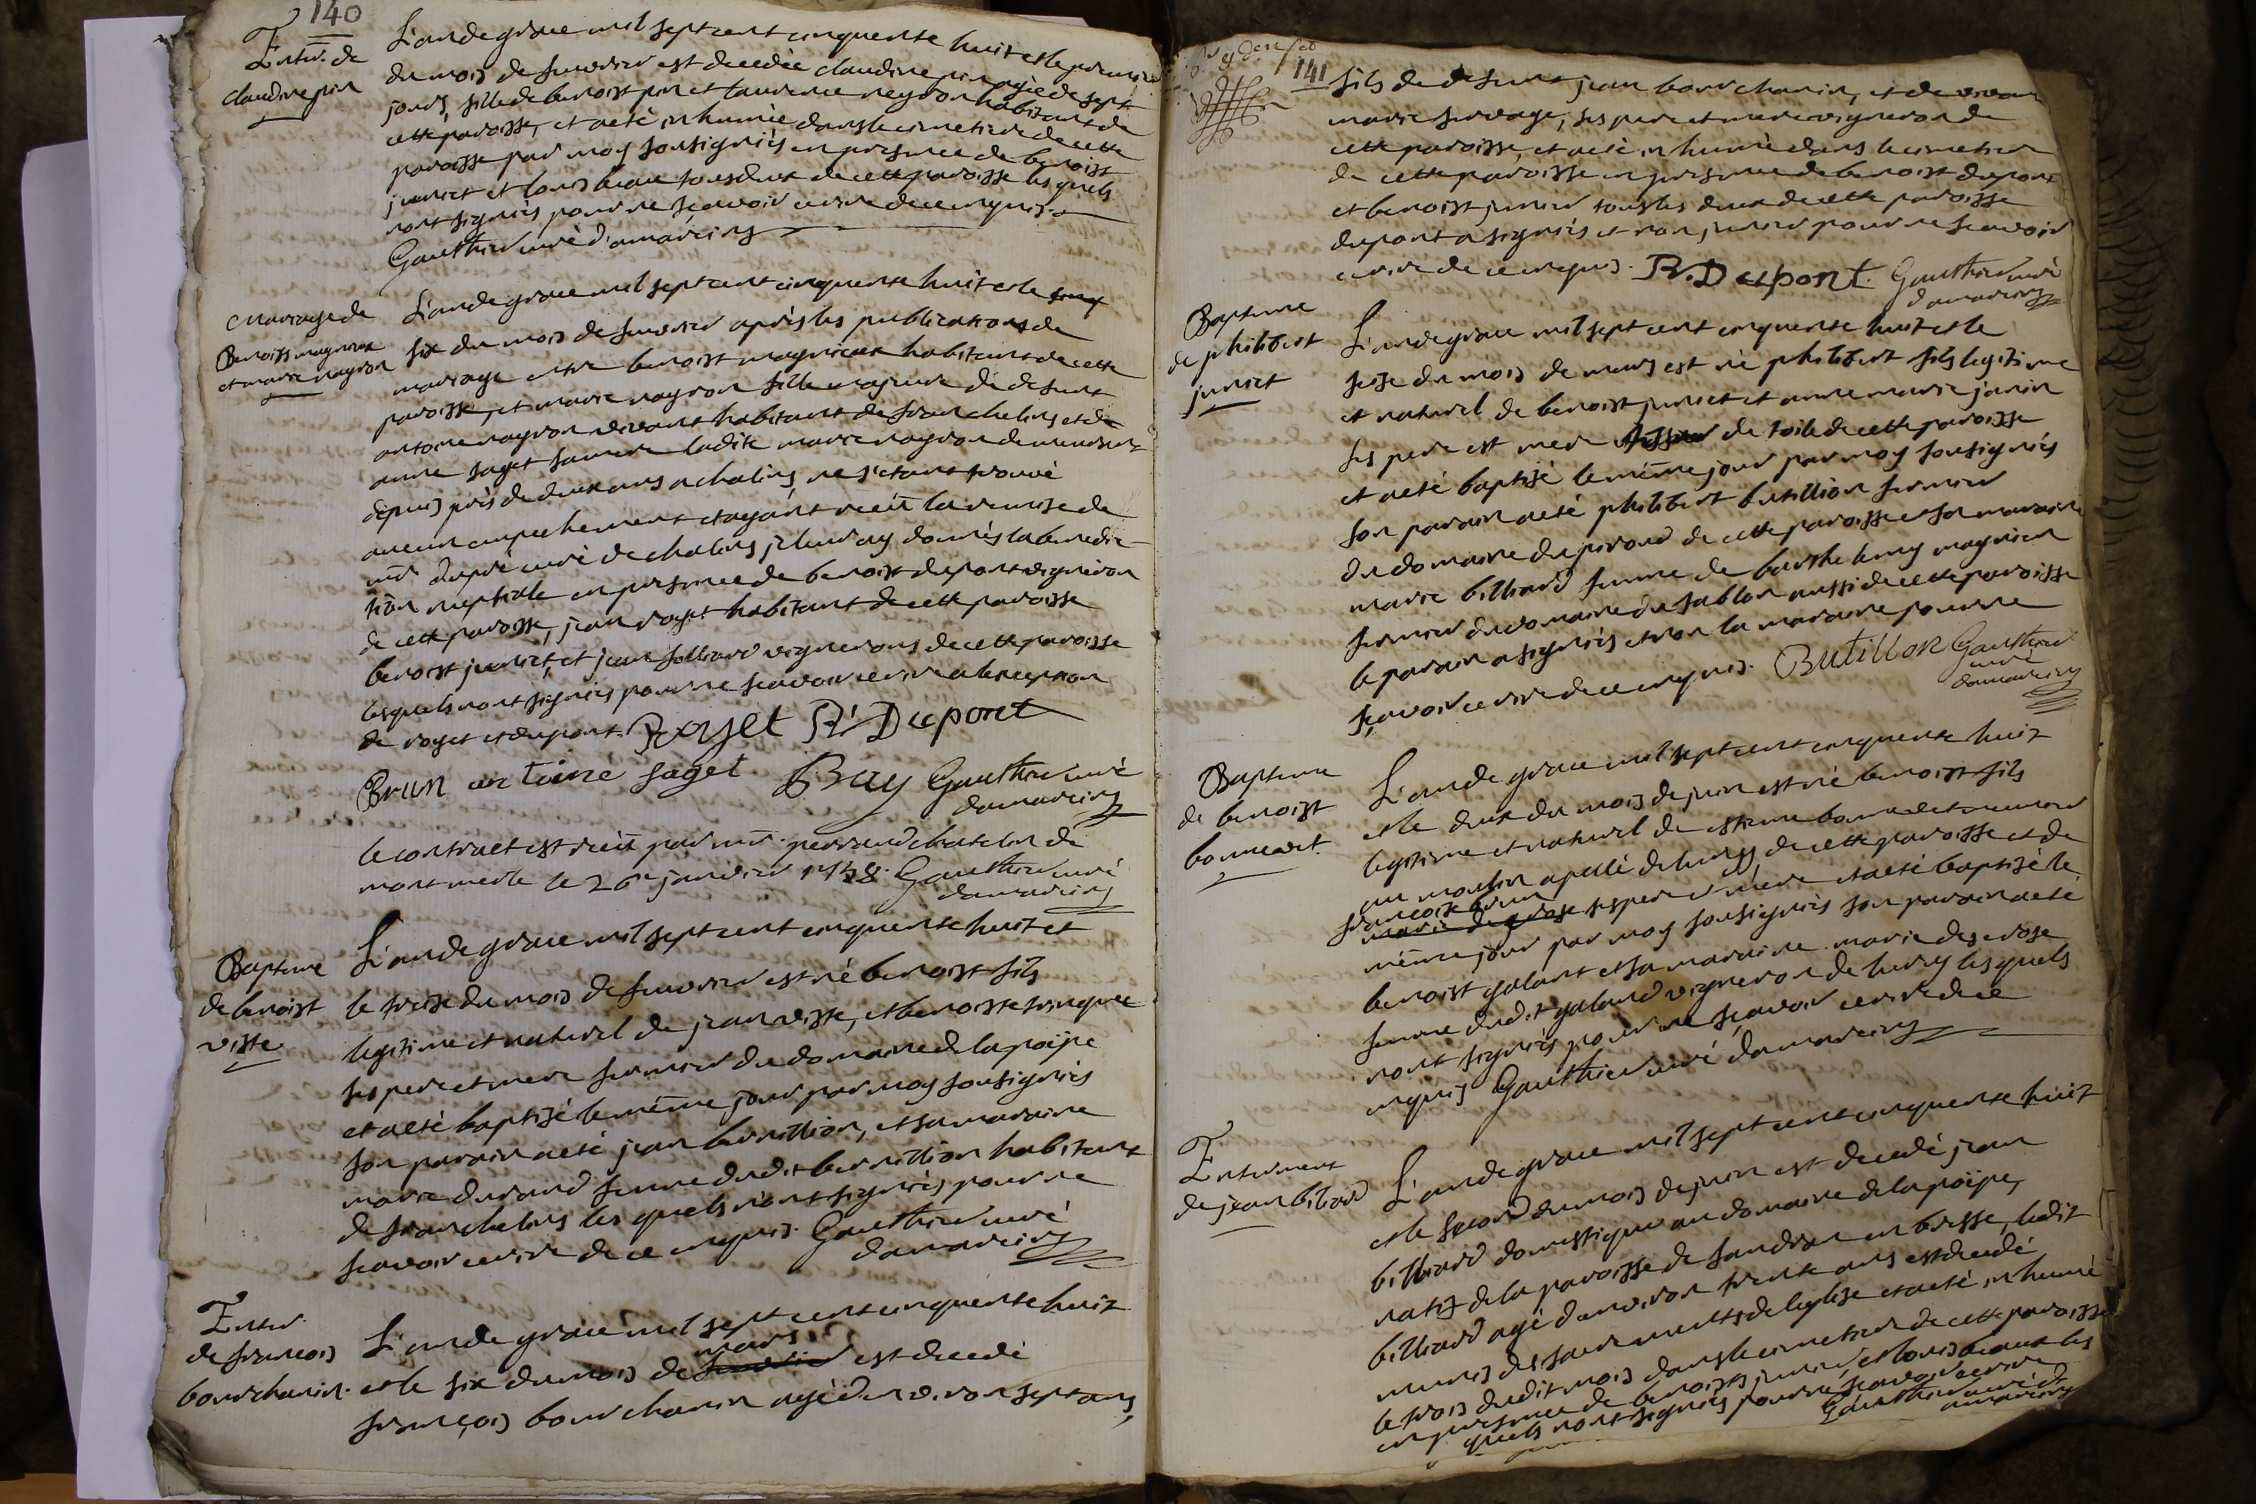 140
Enter. de
claudine pin
L'an de grace mil sept cent cinquente huit et le premier
du mois de fevrier est decedée claudine pin agée de sept
jours, fille de benoist pin et laurence neyron habitant de
cette paroisse, et a eté inhumée dans le cimetiere de cette
paroisse par moy soussigniés en presence de benoist
junict et louis beaux tous deux de cette paroisse les quels
n'ont signiés pour ne sçavoir ecrire de ce enquis.
Gauthier curé d'amareins
Mariage de
Benoist magnieux
et marie nayron
L'an de grace mil sept cent cinquente huit et le
six du mois de fevrier après les publications de
mariage entre benoist magnieux habitant de cette
paroisse, et marie nayron fille majeure de defunt
antoine nayron vivant habitant de francheleins et de
anne saget sa mere ladite marie nayron demeurant
depuis près de deux ans a chaleins, ne s'etant trouvé
aucun empechement et ayant reçû la remise de
mr dupré curé de chaleins je leur ay donnés la benedic
tion nuptiale en presence de benoist dupont vigneron
de cette paroisse, jean royet habitant de cette paroisse
benoist junict, et jean billiard vignerons de cette paroisse
lesquels n'ont signiés pour ne sçavoir ecrire a l'exception
de royet et dupont. Royet B. Dupont
Brun antoine saget Bray Gauthier curé
d'amareins
le contract est reçû par mr perraud chatelin de
montmerle le 26e janvier 1758. Gauthier curé
d'amareins
Bapteme
de benoist
visse
L'an de grace mil sept cent cinquente huit et
le treise du mois de fevrier est né benoist fils
legitime et naturel de jean visse, et benoiste trinquee
ses pere et mere fermier du domaine de la poÿpe
et a eté baptisé le même jour par moy soussigniés
son parain a eté jean bernillion, et sa maraine
marie durand femme dudit bernillion habitant
de francheleins les quels n'ont signiés pour ne
sçavoir ecrire de ce enquis. Gauthier curé
d'amareins
Enter.
de françois
bourchanin.
L'an de grace mil sept cent cinquente huit
et le six du mois de mars est decedé
françois bourchanin agé d'environ sept ans,
141
fils de defunt jean bourchanin, et de vivant
marie servage, ses pere et mere vigneron de
cette paroisse, et a eté inhumé dans le cimetier
de cette paroisse en presence de benoist dupont
et benoist junier tous les deux de cette paroisse
dupont a signiés et non junier pour ne sçavoir
ecrire de ce enquis. B. Dupont. Gauthier curé
d'amareins
Bapteme
de philibert
junict
L'an de grace mil sept cent cinquente huit et le
seise du mois de mars est né philibert fils legitime
et naturel de benoist junict et anne marie janin
ses pere est mere tissier de toile de cette paroisse
et a eté baptisé le même jour par moy soussigniés
son parain a eté philibert butillion fermier
du domaine du peroud de cette paroisse et sa maraine
marie billiard femme de barthelemy magnien
fermier du domaine du sablon aussi de cette paroisse
le parain a signiés et non la maraine pour ne
sçavoir ecrire de ce enquis. Butillon Gauthier
curé
d'amareins
Bapteme
de benoist
bonnardet.
L'an de grace mil sept cent cinquente huit
et le deux du mois de juin est né benoist fils
legitime et naturel de etienne bonnardet meunier
au moulin apellé de lurcy de cette paroisse et de
françoise brun
marie degrose ses pere et mere et a eté baptisé le
même jour par moy soussigniés son parain a eté
benoist galant et sa maraine marie desgrose
femme dudit galand vigneron de lurcy les quels
n'ont signiés pour ne sçavoir ecrire de ce
enquis Gauthier curé d'amareins
Enterment
de jean biliard
L'an de grace mil sept cent cinquente huit
et le second du mois de juin est decedé jean
billiard domestique au domaine de la poÿpe,
natif de la paroisse de sandran en bresse, ledit
billiard agé d'environ trente ans est decedé
munis des sacrements de l'eglise et a eté inhumé
le trois dudit mois dans le cimetier de cette paroisse
en presence de benoist junier, et louis beaux les
quels n'ont signiés pour ne sçavoir ecrire
Gauthier curé d'
amareins